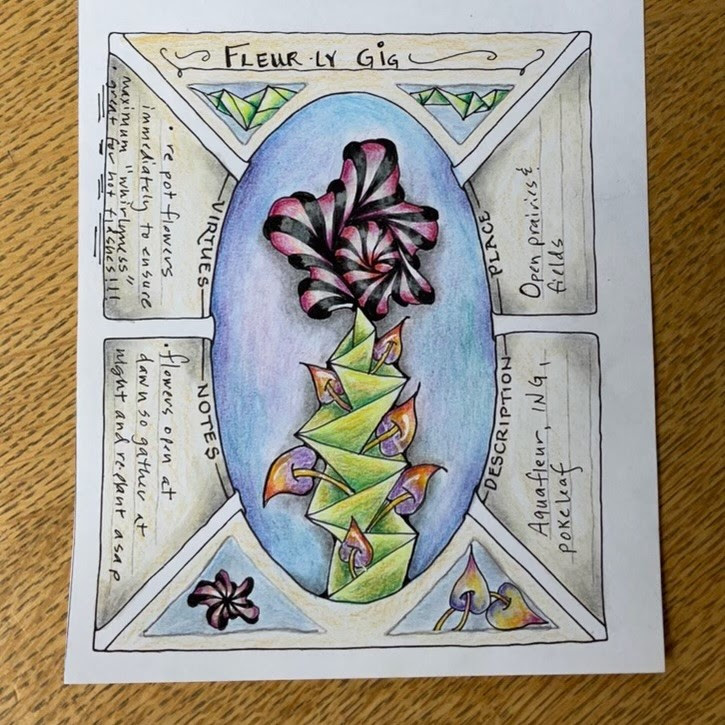 FLEUR·LY GIG
VIRTUES
• repot flowers
immediately to ensure
maximum "whirlyness"
• great for hot flashes!!!
PLACE
Open prairies &
fields
NOTES
• flowers open at
dawn so gather at
night and re-plant asap
DESCRIPTION
Aquafleur, ING,
pokeleaf